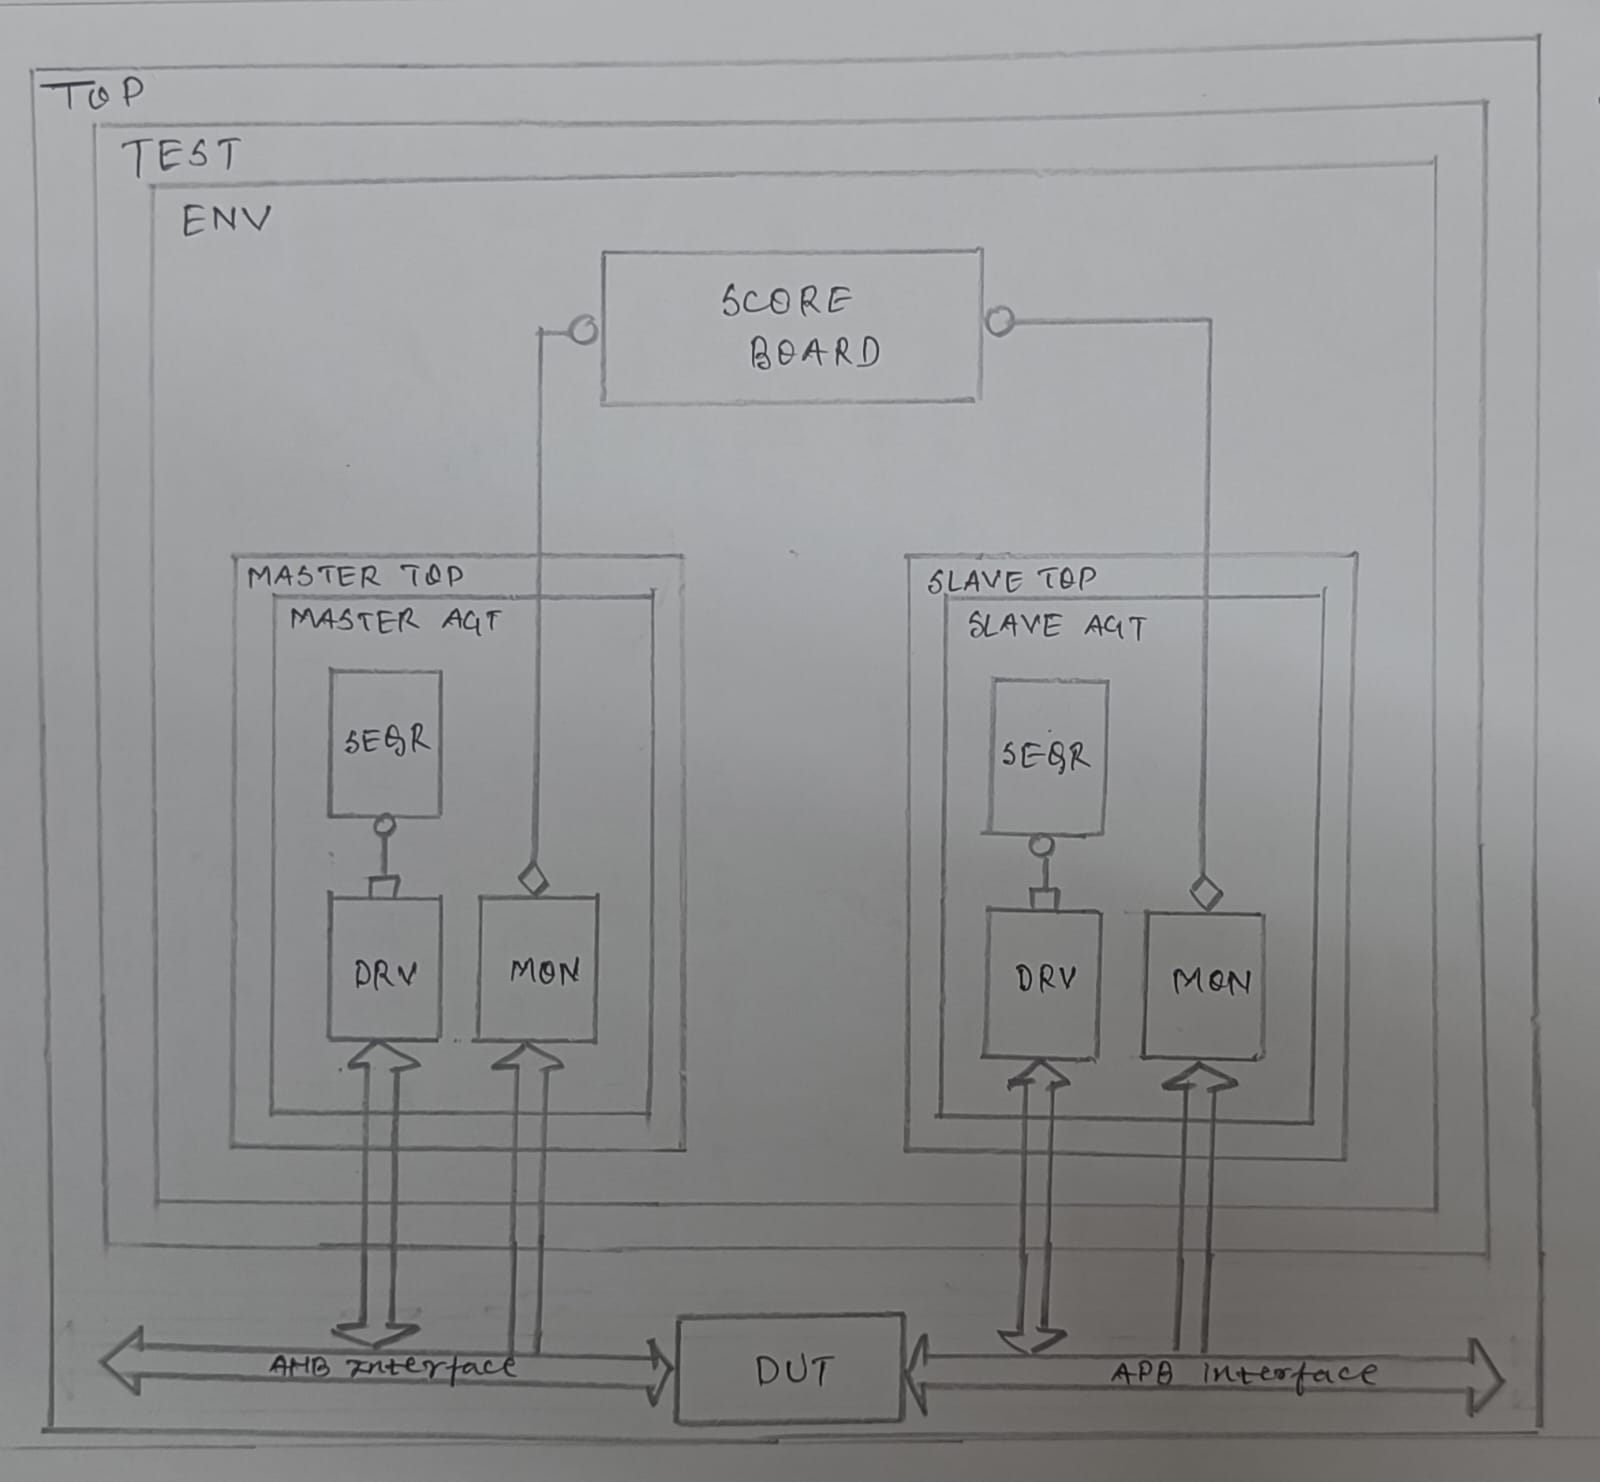 TOP
TEST
ENV
SCORE
BOARD
MASTER TOP
MASTER AGT
SEQR
DRV
MON
SLAVE TOP
SLAVE AGT
SEQR
DRV
MON
AHB Interface
DUT
APB Interface